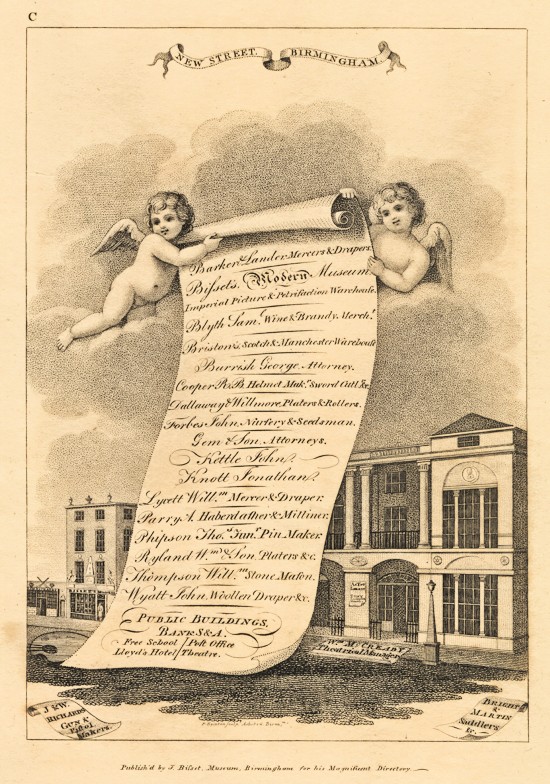 C
NEW STREET. BIRMINGHAM.
Barker & Lander Mercers & Drapers.
Bisset's, Modern Museum,
Imperial Picture & Petrifaction Warehouse.
Blyth Sam.l Wine & Brandy, Merch.t
Briston's, Scotch & Manchester Warehouse
Burrish George, Attorney.
Cooper R. & B. Helmet Mak.rs Sword Cutl. &c.
Dallaway & Willmore, Platers & Rollers.
Forbes John, Nursery & Seedsman.
Gem & Son, Attorneys.
Kettle John.
Knott Jonathan.
Lycett Will.m Mercer & Draper.
Parry A. Haberdasher & Milliner.
Phipson Tho.s Jun.r Pin Maker.
Ryland W.m & Son, Platers &c.
Thompson Will.m Stone Mason.
Wyatt John, Woollen Draper &c.
PUBLIC BUILDINGS,
BANKS &A.
Free School / Post Office
Lloyd's Hotel / Theatre.
W.m Mc. CREADY
Theatrical Manager
J & W.
RICHARDS
GUN &
Pistol
Makers.
BRIGHT
&
MARTIN
Saddlers
&c.
Publish'd by J. Bisset, Museum, Birmingham for his Magnificent Directory.